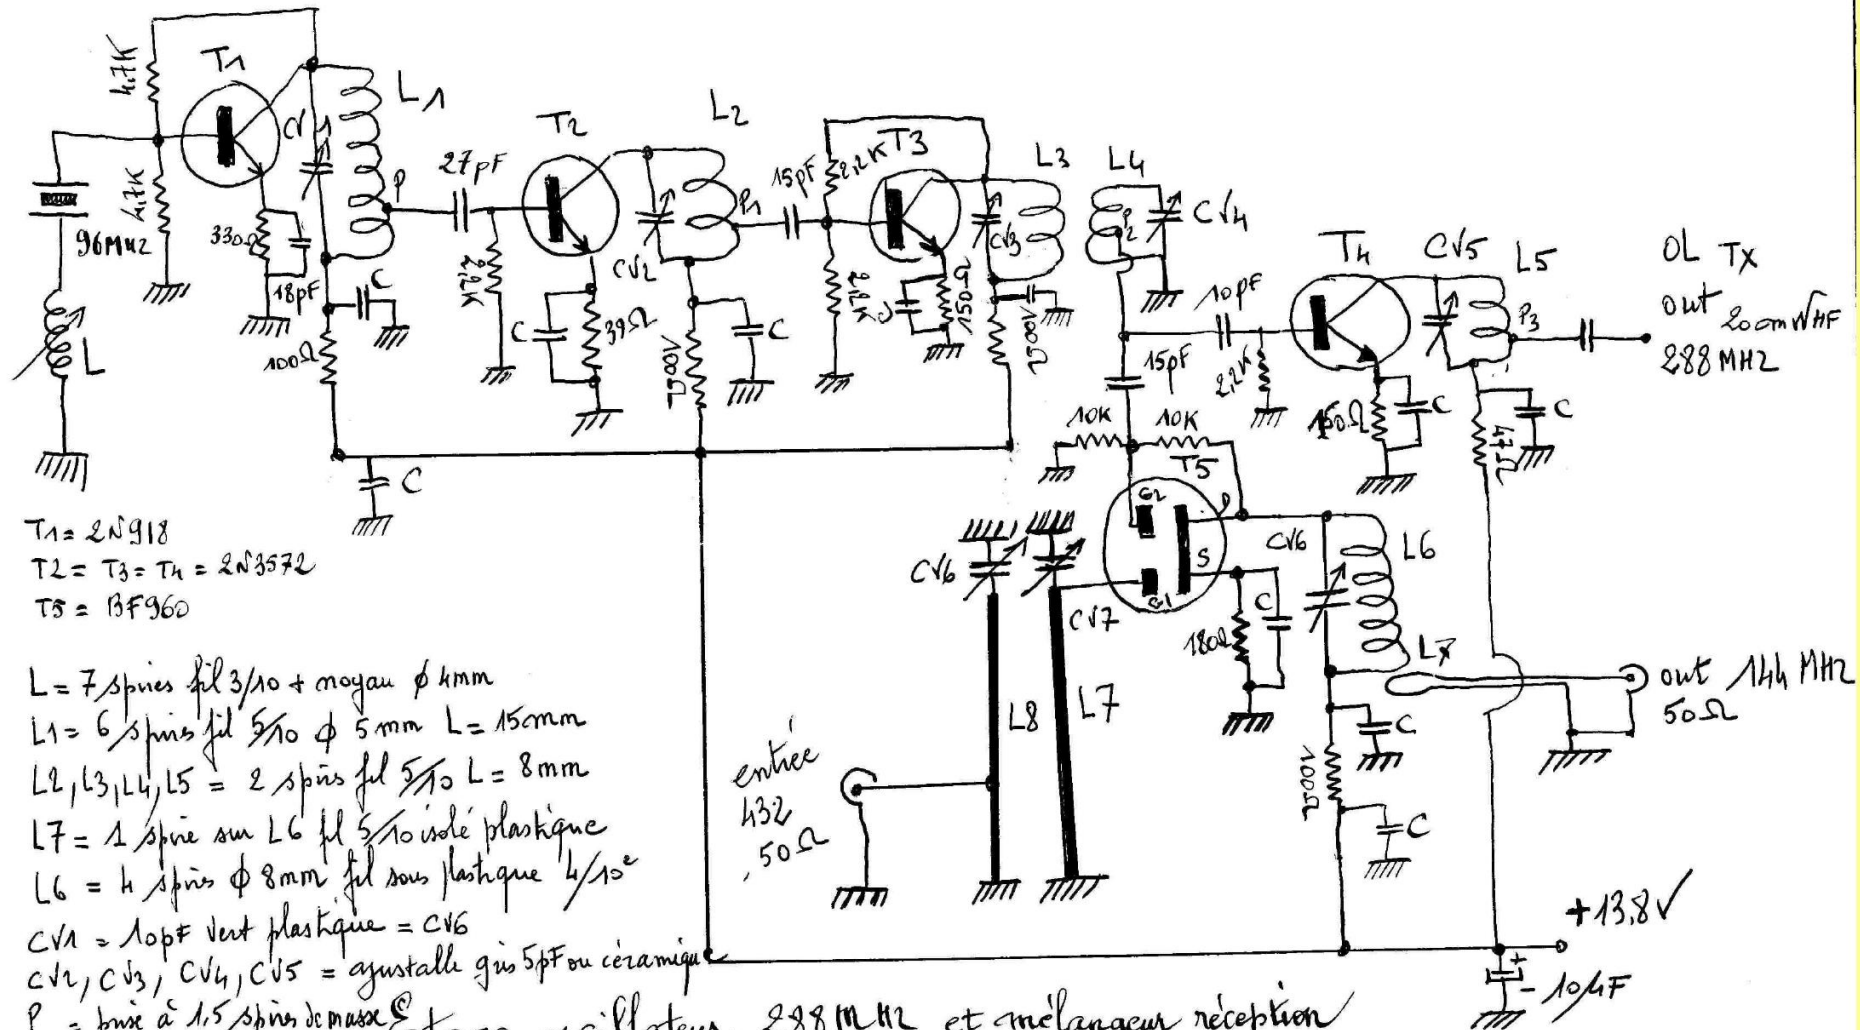 4,7K
T1
CV1
L1
4,7K
96MHz
330Ω
18pF
C
100Ω
L
P
27pF
T2
L2
2,2K
CV2
C
39Ω
P1
100Ω
C
15pF
2,2K
T3
L3
CV3
2,2K
C
150Ω
100Ω
L4
P2
CV4
10pF
T4
CV5
L5
P3
OL TX
out 200mW HF
288 MHz
15pF
2,2K
150Ω
C
C
47Ω
10K
10K
T5
C
G2
D
S
G1
CV6
CV7
CV6
L6
180Ω
C
L7
out 144 MHz
50Ω
L8
L7
C
100Ω
C
entrée
432
50Ω
+13,8V
+
- 10µF
T1= 2N918
T2= T3= T4= 2N3572
T5 = BF960
L= 7 spires fil 3/10 + noyau ϕ 4mm
L1= 6 spires fil 5/10 ϕ 5mm L= 15mm
L2, L3, L4, L5 = 2 spires fil 5/10 L= 8mm
L7= 1 spire sur L6 fil 5/10 isolé plastique
L6 = 4 spires ϕ 8mm fil sous plastique 4/10e
CV1 = 10pF vert plastique = CV6
CV2, CV3, CV4, CV5 = ajustable gris 5pF ou céramique
P = prise à 1,5 spires de masse
oscillateur 288 MHz et mélangeur réception